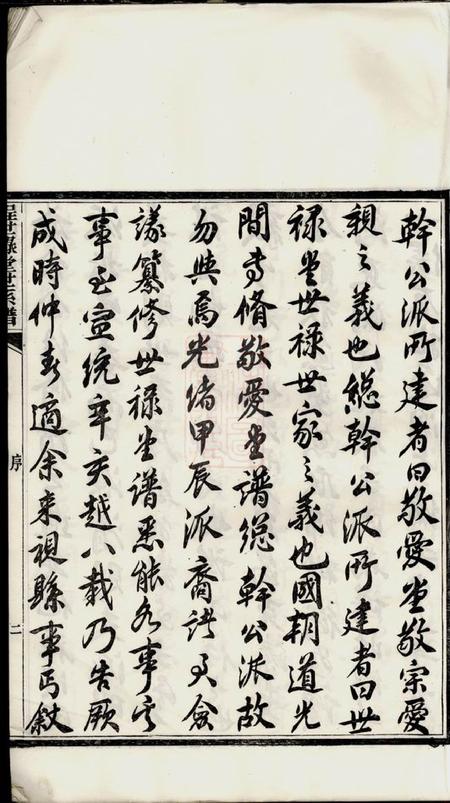 幹公派所建者曰敬愛堂敬宗愛
親之義也總幹公派所建者曰世
祿堂世祿世家之義也國朝道光
間專脩敬愛堂譜總幹公派故
勿與焉光緒甲辰派裔諸君僉
議纂修世祿堂譜悉能各事其
事至宣統辛亥越八載乃告厥
成時仲春適余來視縣事丐敘
程世祿堂世系譜
序
二